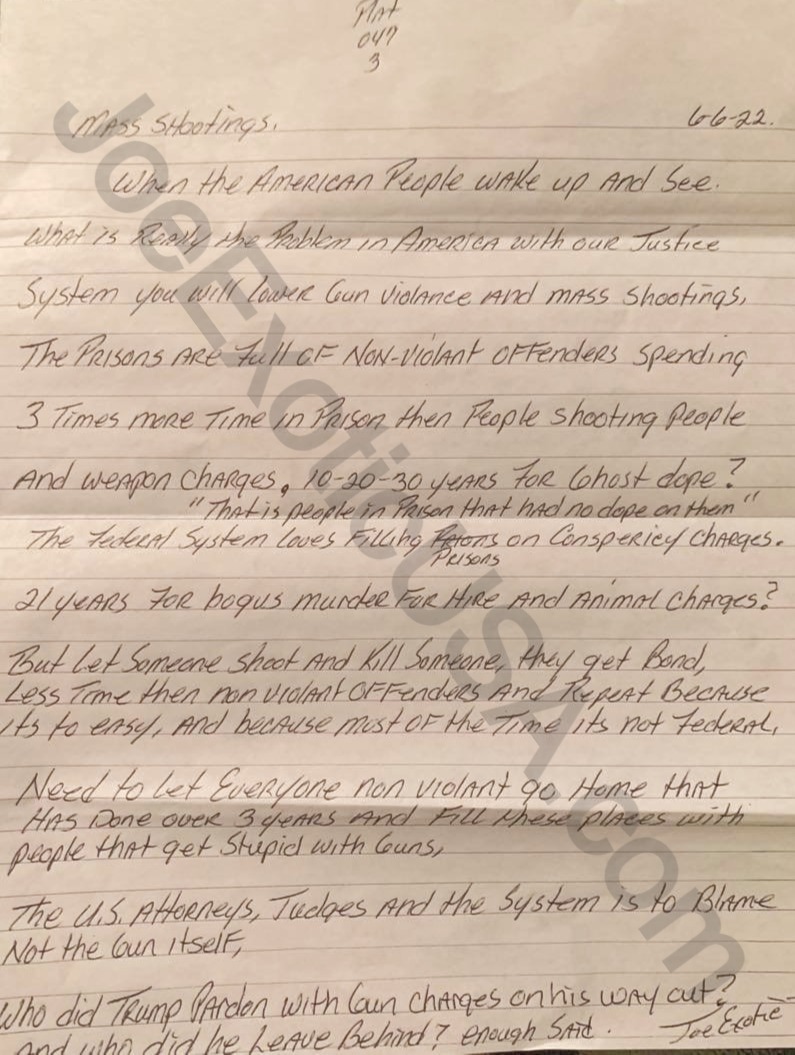 PlAt
047
3
MASS SHootings.
6-6-22.
When the AMERICAN People wake up And See.
What is Really the Problem in America with our Justice
System you will lower Gun violance and mass shootings,
The Prisons are Full of Non-Violant Offenders spending
3 Times more Time in Prison then People shooting people
And weapon charges, 10-20-30 years For Ghost dope?
"That is people in Prison that had no dope on them"
The Federal System Loves Filling on Conspericy Charges.
Prisons
21 years For bogus murder For Hire And Animal Charges?
But Let Someone shoot And Kill Someone, they get Bond,
Less Time then non violant Offenders And Repeat Because
its to easy, And because most of the Time its not Federal,
Need to Let Everyone non violant go Home that
Has Done over 3 years And Fill these places with
people that get Stupid with Guns,
The U.S. Attorneys, Judges And the System is to Blame
Not the Gun itself,
Who did Trump Pardon with Gun Charges on his way out?
and who did he Leave Behind? enough Said.
Joe Exotic
JoeExoticUSA.com